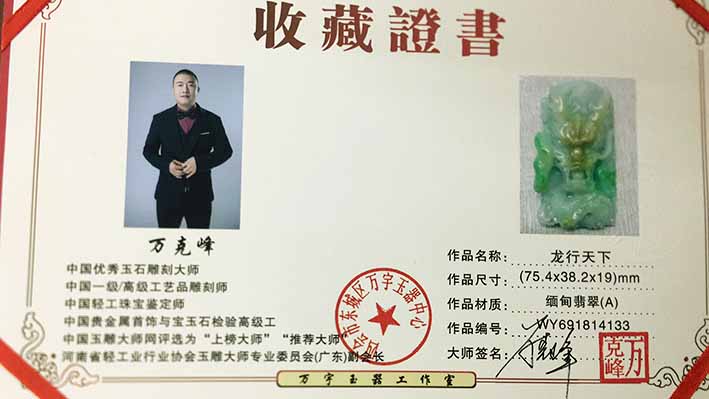 收藏證書
万克峰
中国优秀玉石雕刻大师
中国一级/高级工艺品雕刻师
中国轻工珠宝鉴定师
中国贵金属首饰与宝玉石检验高级工
中国玉雕大师网评选为“上榜大师”“推荐大师”
河南省轻工业行业协会玉雕大师专业委员会(广东)副会长
四会市东城区万宇玉器中心
作品名称: 龙行天下
作品尺寸: (75.4x38.2x19)mm
作品材质: 缅甸翡翠(A)
作品编号: WY691814133
大师签名:
万克峰
万宇玉器工作室